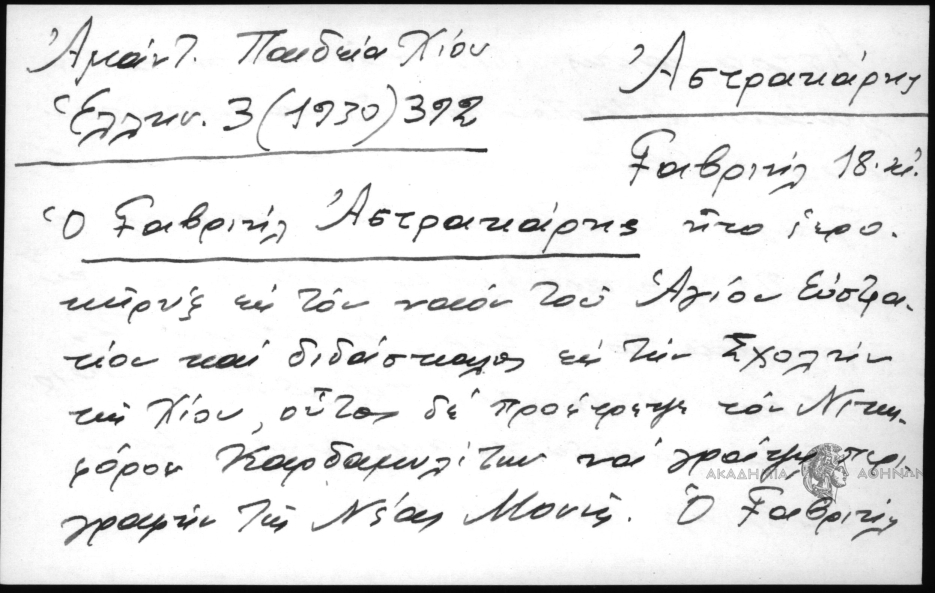 Ἀμάντ. Παιδεία Χίου
Ἑλλην. 3 (1930) 392
Ἀστρακάρης
Γαβριήλ 18. αἰ.
Ὁ Γαβριήλ Ἀστρακάρης ἦτο ἱερο-
κῆρυξ εἰς τόν ναόν τοῦ Ἁγίου Εὐστρα-
τίου καί διδάσκαλος εἰς τήν Σχολήν
τῆς Χίου, οὗτος δέ προέτρεψε τόν Νικη-
φόρον Καρδαμυλίτην νά γράψῃ περι-
γραφήν τῆς Νέας Μονῆς. Ὁ Γαβριήλ
ΑΚΑΔΗΜΙΑ ΑΘΗΝΩΝ